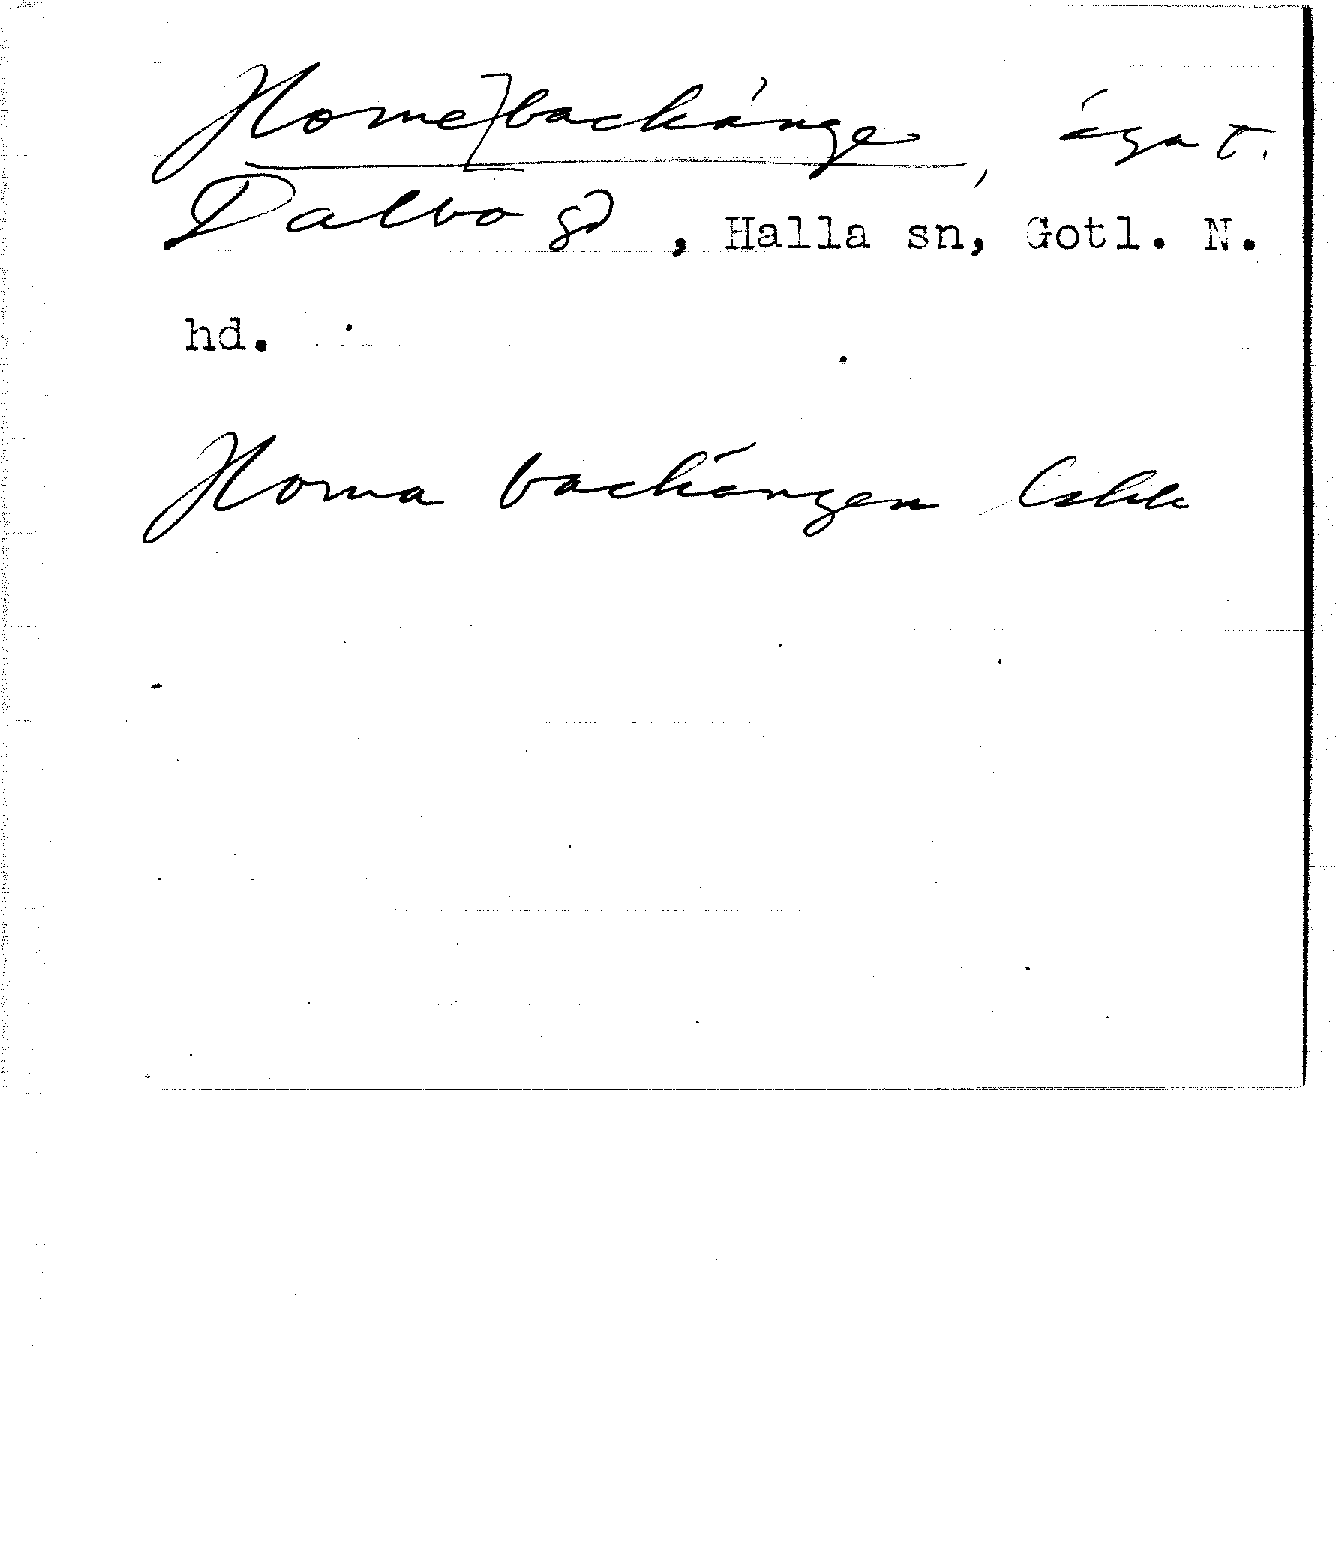 Horne]backänge, äga t.
Dalbo gd, Halla sn, Gotl. N.
hd.
Horna backängen Lskk